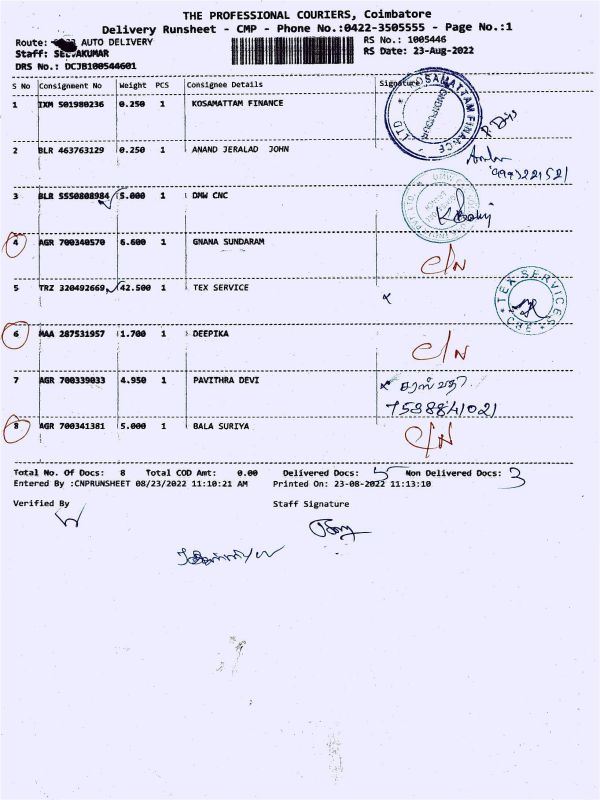 THE PROFESSIONAL COURIERS, Coimbatore
Delivery Runsheet - CMP - Phone No.:0422-3505555 - Page No.:1
Route: AUTO DELIVERY RS No.: 1005446
Staff: SELVAKUMAR RS Date: 23-Aug-2022
DRS No.: DCJB100544601
S No Consignment No Weight PCS Consignee Details Signature
1 IXM 501980236 0.250 1 KOSAMATTAM FINANCE
KOSAMATTAM FINANCE LTD
2 BLR 463763129 0.250 1 ANAND JERALAD JOHN
3 BLR 5550808984 5.000 1 DMW CNC
4 AGR 700340570 6.600 1 GNANA SUNDARAM C/N
5 TRZ 320492669 42.500 1 TEX SERVICE
TEX SERVICES CBE
6 MAA 287531957 1.700 1 DEEPIKA C/N
7 AGR 700339033 4.950 1 PAVITHRA DEVI சரஸ்வதி
7538841021
8 AGR 700341381 5.000 1 BALA SURIYA C/N
Total No. Of Docs: 8 Total COD Amt: 0.00 Delivered Docs: 5 Non Delivered Docs: 3
Entered By :CNPRUNSHEET 08/23/2022 11:10:21 AM Printed On: 23-08-2022 11:13:10
Verified By Staff Signature